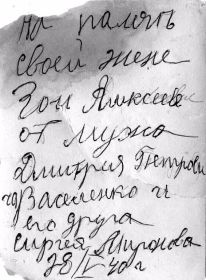 на память
своей жене
Зои Алексеев
от мужа
Дмитрия Петрови
Василенко и
его друга
сиргея Миронова
28/I-40 г